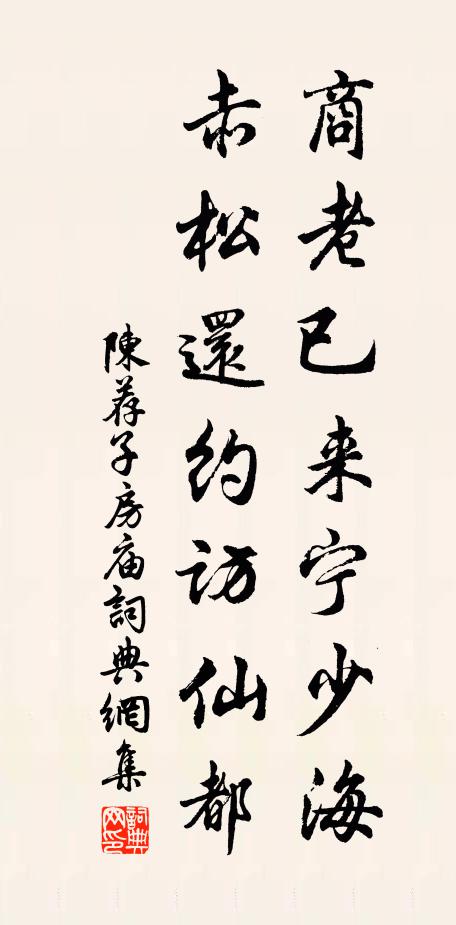 商老已来宁少海
赤松還约访仙都
陳荐子房庙詞典網集
詞典
网印